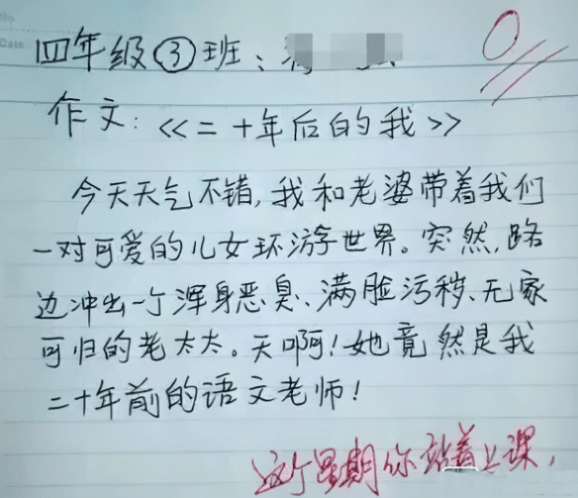 No
Date
四年级③班:
0
作文:《二十年后的我》
今天天气不错,我和老婆带着我们
一对可爱的儿女环游世界。突然,路
边冲出一个浑身恶臭、满脸污秽、无家
可归的老太太。天啊!她竟然是我
二十年前的语文老师!
这个星期你站着上课,